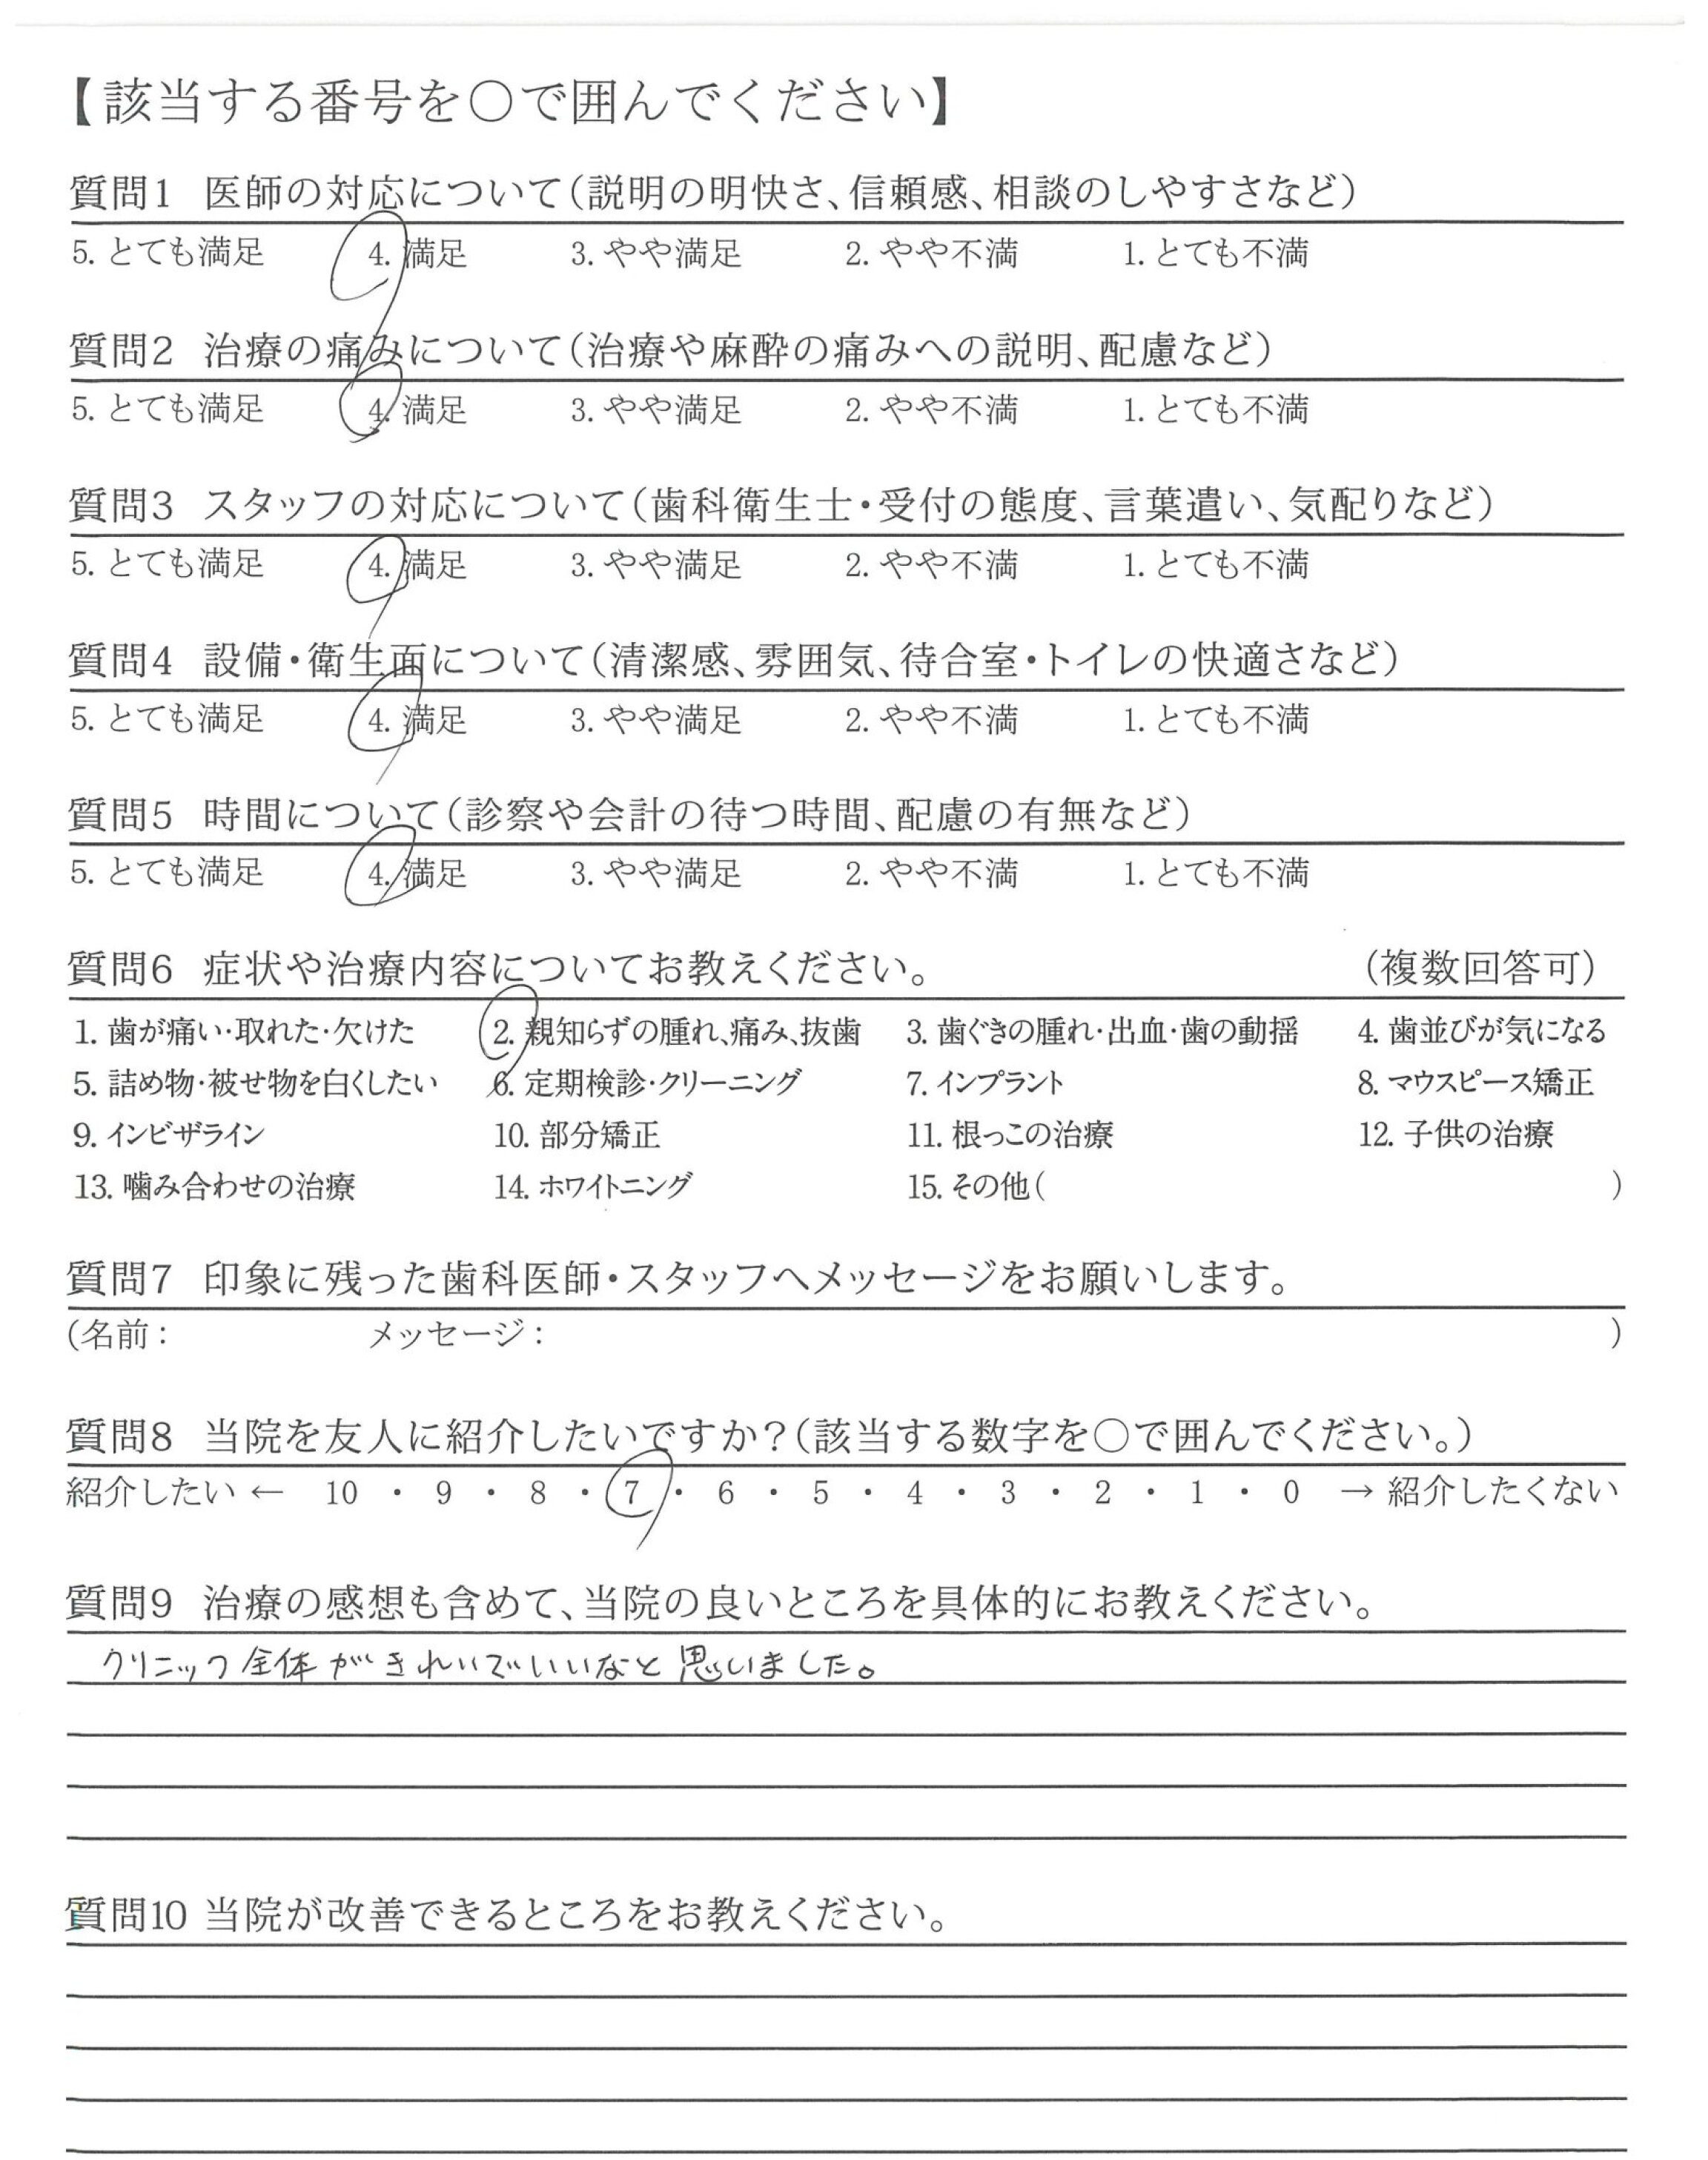 【該当する番号を○で囲んでください】
質問1 医師の対応について(説明の明快さ、信頼感、相談のしやすさなど)
5. とても満足 4. 満足 3. やや満足 2. やや不満 1. とても不満
質問2 治療の痛みについて(治療や麻酔の痛みへの説明、配慮など)
5. とても満足 4. 満足 3. やや満足 2. やや不満 1. とても不満
質問3 スタッフの対応について(歯科衛生士・受付の態度、言葉遣い、気配りなど)
5. とても満足 4. 満足 3. やや満足 2. やや不満 1. とても不満
質問4 設備・衛生面について(清潔感、雰囲気、待合室・トイレの快適さなど)
5. とても満足 4. 満足 3. やや満足 2. やや不満 1. とても不満
質問5 時間について(診察や会計の待つ時間、配慮の有無など)
5. とても満足 4. 満足 3. やや満足 2. やや不満 1. とても不満
質問6 症状や治療内容についてお教えください。 (複数回答可)
1. 歯が痛い・取れた・欠けた 2. 親知らずの腫れ、痛み、抜歯 3. 歯ぐきの腫れ・出血・歯の動揺 4. 歯並びが気になる
5. 詰め物・被せ物を白くしたい 6. 定期検診・クリーニング 7. インプラント 8. マウスピース矯正
9. インビザライン 10. 部分矯正 11. 根っこの治療 12. 子供の治療
13. 噛み合わせの治療 14. ホワイトニング 15. その他( )
質問7 印象に残った歯科医師・スタッフへメッセージをお願いします。
(名前: メッセージ: )
質問8 当院を友人に紹介したいですか?(該当する数字を○で囲んでください。)
紹介したい ← 10 ・ 9 ・ 8 ・ 7 ・ 6 ・ 5 ・ 4 ・ 3 ・ 2 ・ 1 ・ 0 → 紹介したくない
質問9 治療の感想も含めて、当院の良いところを具体的にお教えください。
クリニック全体がきれいでいいなと思いました。
質問10 当院が改善できるところをお教えください。